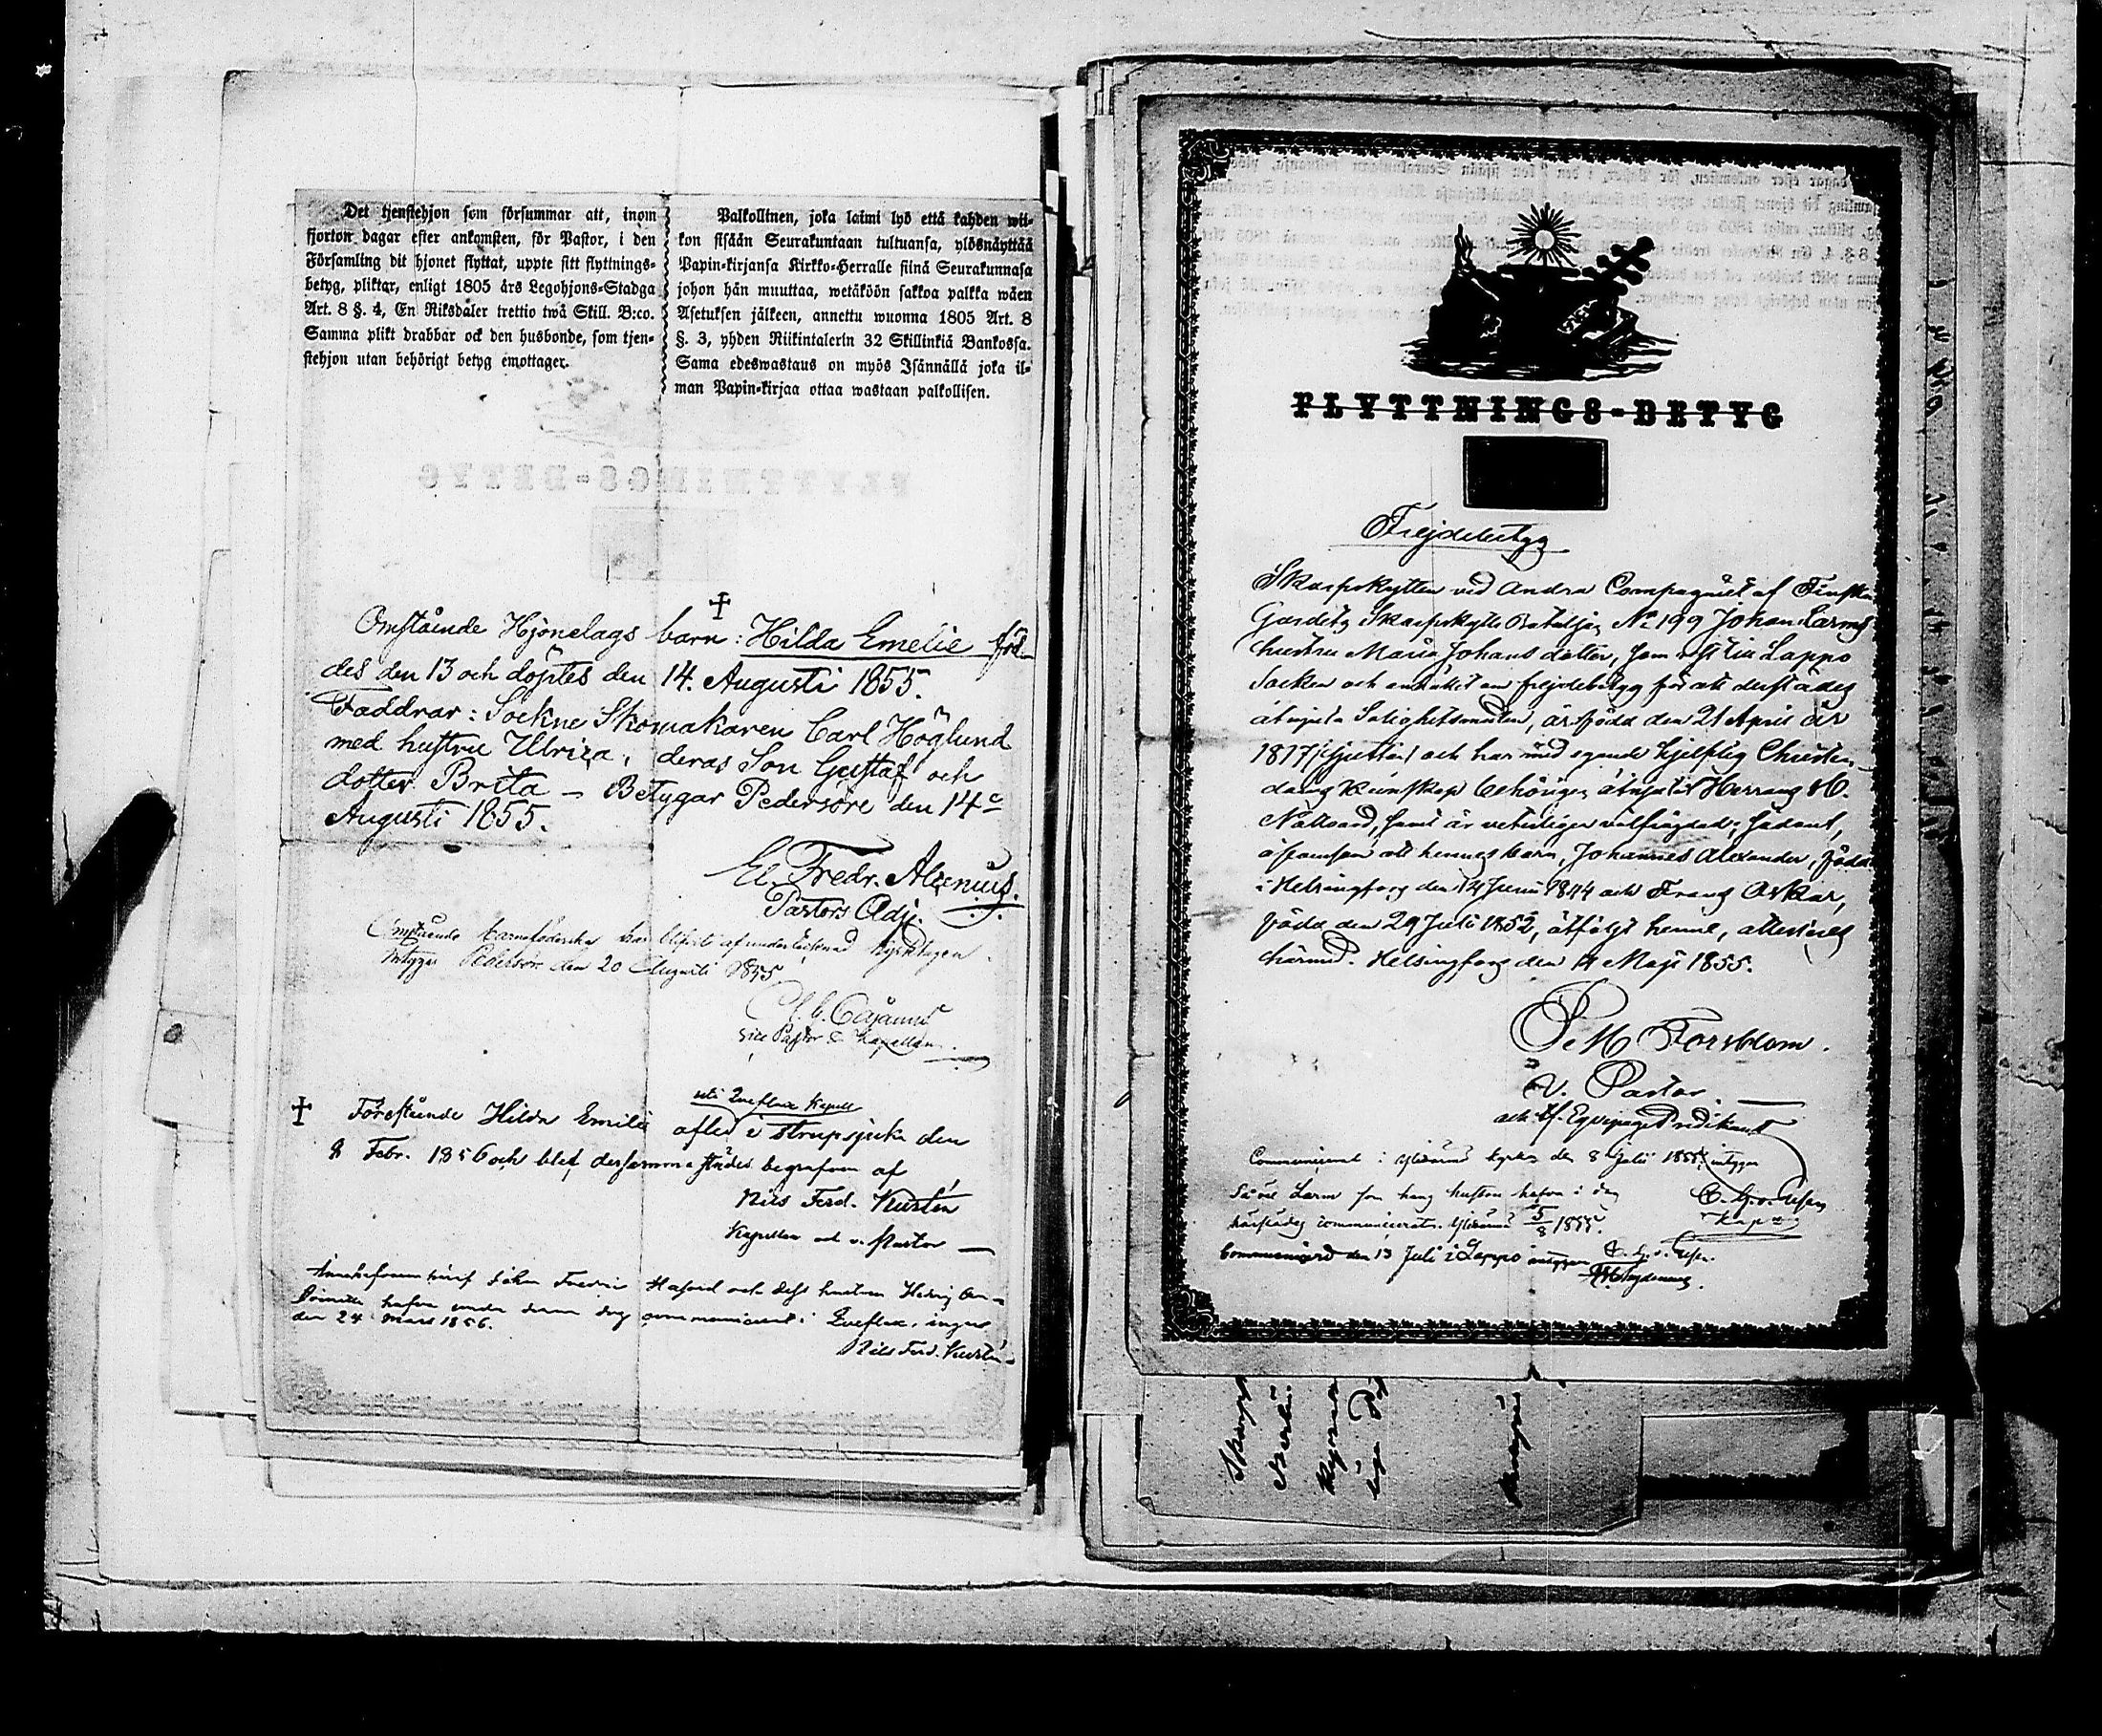 Det tjenstehjon som försummar att, inom
fjorton dagar efter ankomsten, för Pastor, i den
Församling dit hjonet flyttat, uppte sitt flyttnings-
betyg, pliktar, enligt 1805 års Legohjons-Stadga
Art. 8 §. 4, En Riksdaler trettio twå Skill. B:co.
Samma plikt drabbar ock den husbonde, som tjen-
stehjon utan behörigt betyg emottager.
Palkollinen, joka laimi lyö että kahden wii-
kon sisään Seurakuntaan tultuansa, ylösnäyttää
Papin-kirjansa Kirkko-Herralle siinä Seurakunnasa
johon hän muuttaa, wetäköön sakkoa palkka wäen
Asetuksen jälkeen, annettu wuonna 1805 Art. 8
§. 3, yhden Riikintalerin 32 Skillinkiä Bankossa.
Sama edeswastaus on myös Isännällä joka il-
man Papin-kirjaa ottaa wastaan palkollisen.
Omstående Hjonelags barn: Hilda Emelie föd-
des den 13 och döptes den 14. Augusti 1855.
Faddrar: Sockne Skomakaren Carl Höglund
med hustru Ulrica, deras Son Gustaf och
dotter Brita – Betygar Pedersöre den 14
Augusti 1855.
Fredr. Alcenius.
Pastors Adj.
Omstående barnaföderska har blifvit af undertecknad kyrktagen
intygar Pedersöre den 20 Augusti 1855
vice Pastor & Kapellan.
uti Qveflax Kapell
Förestående Hilda Emilie afled i strupsjuka den
8 Febr. 1856 och blef dersammastädes begrafven af
Nils Ferd. Kurtén
Kapellan och v. Pastor
Johan Fredric och dess hustru Hedvig
hafva under denna dag communicerat i Qveflax, intygar
den 24 Mars 1856.
Nils Ferd. Kurtén
FLYTTNINGS-BETYG
Frejdebetyg
Skarpskytten vid Andra Compagniet af Finska
Gardets Skarpskytte Bataljon No 199 Johan Larms
hustru Maria Johans dotter, som rest till Lappo
Socken och anhållit om frejdebetyg för att derstädes
åtnjuta Salighetsmedlen, är född den 21 April år
1817 (sjutton) och har med egande hjelplig Christen-
doms kunskap behörigen åtnjutit Herrans H.
Nattvard, samt är veterligen välfrägdad; sådant,
äfvensom att hennes barn, Johannes Alexander, född
i Helsingfors den 14 Juni 1844 och Frans Oskar,
född den 29 Juli 1852, åtföljt henne, attesteras
härmed. Helsingfors den 14 Maji 1855.
Forsblom.
v. Pastor
och tf. Eqvipage Predikant
Communicerat i kyrka den 8 Julii 1855, intygar
Larm som hans hustru hafva i dag
härstädes communicerat. 5/8 1855.
Communicerat den 13 Juli i Lappo intygar